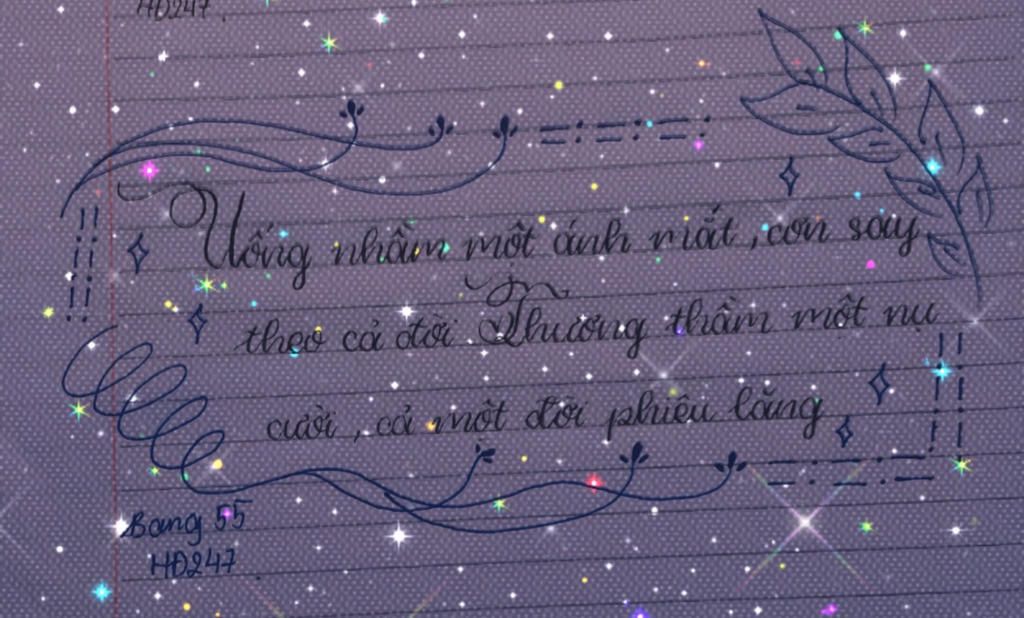 HĐ247
Uống nhầm một ánh mắt, cơn say
theo cả đời. Thương thầm một nụ
cười, cả một đời phiêu lãng
Bang 55
HĐ247